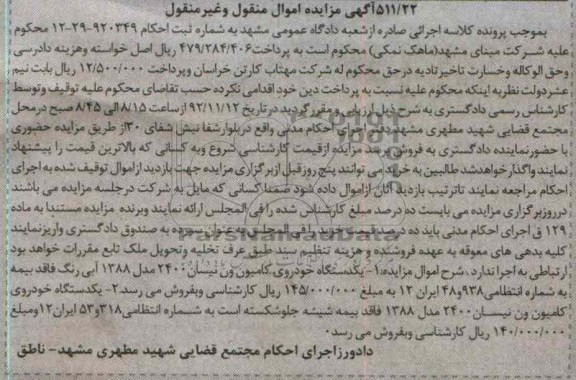 ۵۱۱/۲۲آگهی مزایده اموال منقول وغیرمنقول
بموجب پرونده کلاسه اجرائی صادره ازشعبه دادگاه عمومی مشهد به شماره ثبت احکام ۹۲۰۳۴۹-۲۹-۱۲ محکوم
علیه شرکت مبنای مشهد(ماهک نمکی) محکوم است به پرداخت۴۷۹/۲۸۴/۴۰۶ ریال اصل خواسته وهزینه دادرسی
وحق الوکاله وخسارت تاخیرتادیه درحق محکوم له شرکه مهتاب کارتن خراسان وپرداخت ۱۲/۵۰۰/۰۰۰ ریال بابت نیم
عشردولت نظربه اینکه محکوم علیه نسبت به پرداخت دین خود اقدامی نکرده حسب تقاضای محکوم علیه توقیف وتوسط
کارشناس رسمی دادگستری به شرح ذیل ارزیابی و مقررگردید درتاریخ ۹۲/۱۱/۱۲ ازساعت ۸/۱۵ الی ۸/۴۵ صبح درمحل
مجتمع قضایی شهید مطهری مشهد دفتر اجرای احکام مدنی واقع دربلوارشفا نبش شفای ۳۰از طریق مزایده حضوری
با حضورنماینده دادگستری به فروش برسد مزایده ازقیمت کارشناسی شروع وبه کسانی که بالاترین قیمت را پیشنهاد
نمایند واگذارخواهدشد طالبین به خرید می توانند پنج روزقبل ازبرگزاری مزایده جهت بازدید ازاموال توقیف شده به اجرای
احکام مراجعه نمایند تاترتیب بازدید آنان ازاموال داده شود ضمنا کسانی که مایل به شرکت درجلسه مزایده می باشند
درروزبرگزاری مزایده می بایست ده درصد مبلغ کارشناسی شده را فی المجلس ارائه نمایند وبرنده مزایده مستندا به ماده
۱۲۹ ق اجرای احکام مدنی باید ده درصد قیمت خرید را فی المجلس به عنوان سپرده به صندوق دادگستری واریزنمایند
کلیه بدهی های معوقه به عهده فروشنده و هزینه تنظیم سند طبق عرف تخلیه وتحویل ملک تابع مقررات خواهد بود
ارتباطی به اجرا ندارد .شرح اموال مزایده:۱- یکدستگاه خودروی کامیون ون نیسان۲۴۰۰ مدل ۱۳۸۸ آبی رنگ فاقد بیمه
به شماره انتظامی۹۳۸و۴۸ ایران ۱۲ به مبلغ ۱۴۵/۰۰۰/۰۰۰ ریال کارشناسی وبفروش می رسد.۲- یکدستگاه خودروی
کامیون ون نیسان۲۴۰۰ مدل ۱۳۸۸ فاقد بیمه شیشه جلوشکسته است به شماره انتظامی۳۱۸و۵۳ ایران۱۲ومبلغ
۱۴۰/۰۰۰/۰۰۰ ریال کارشناسی وبفروش می رسد۰
دادورزاجرای احکام مجتمع قضایی شهید مطهری مشهد- ناطق